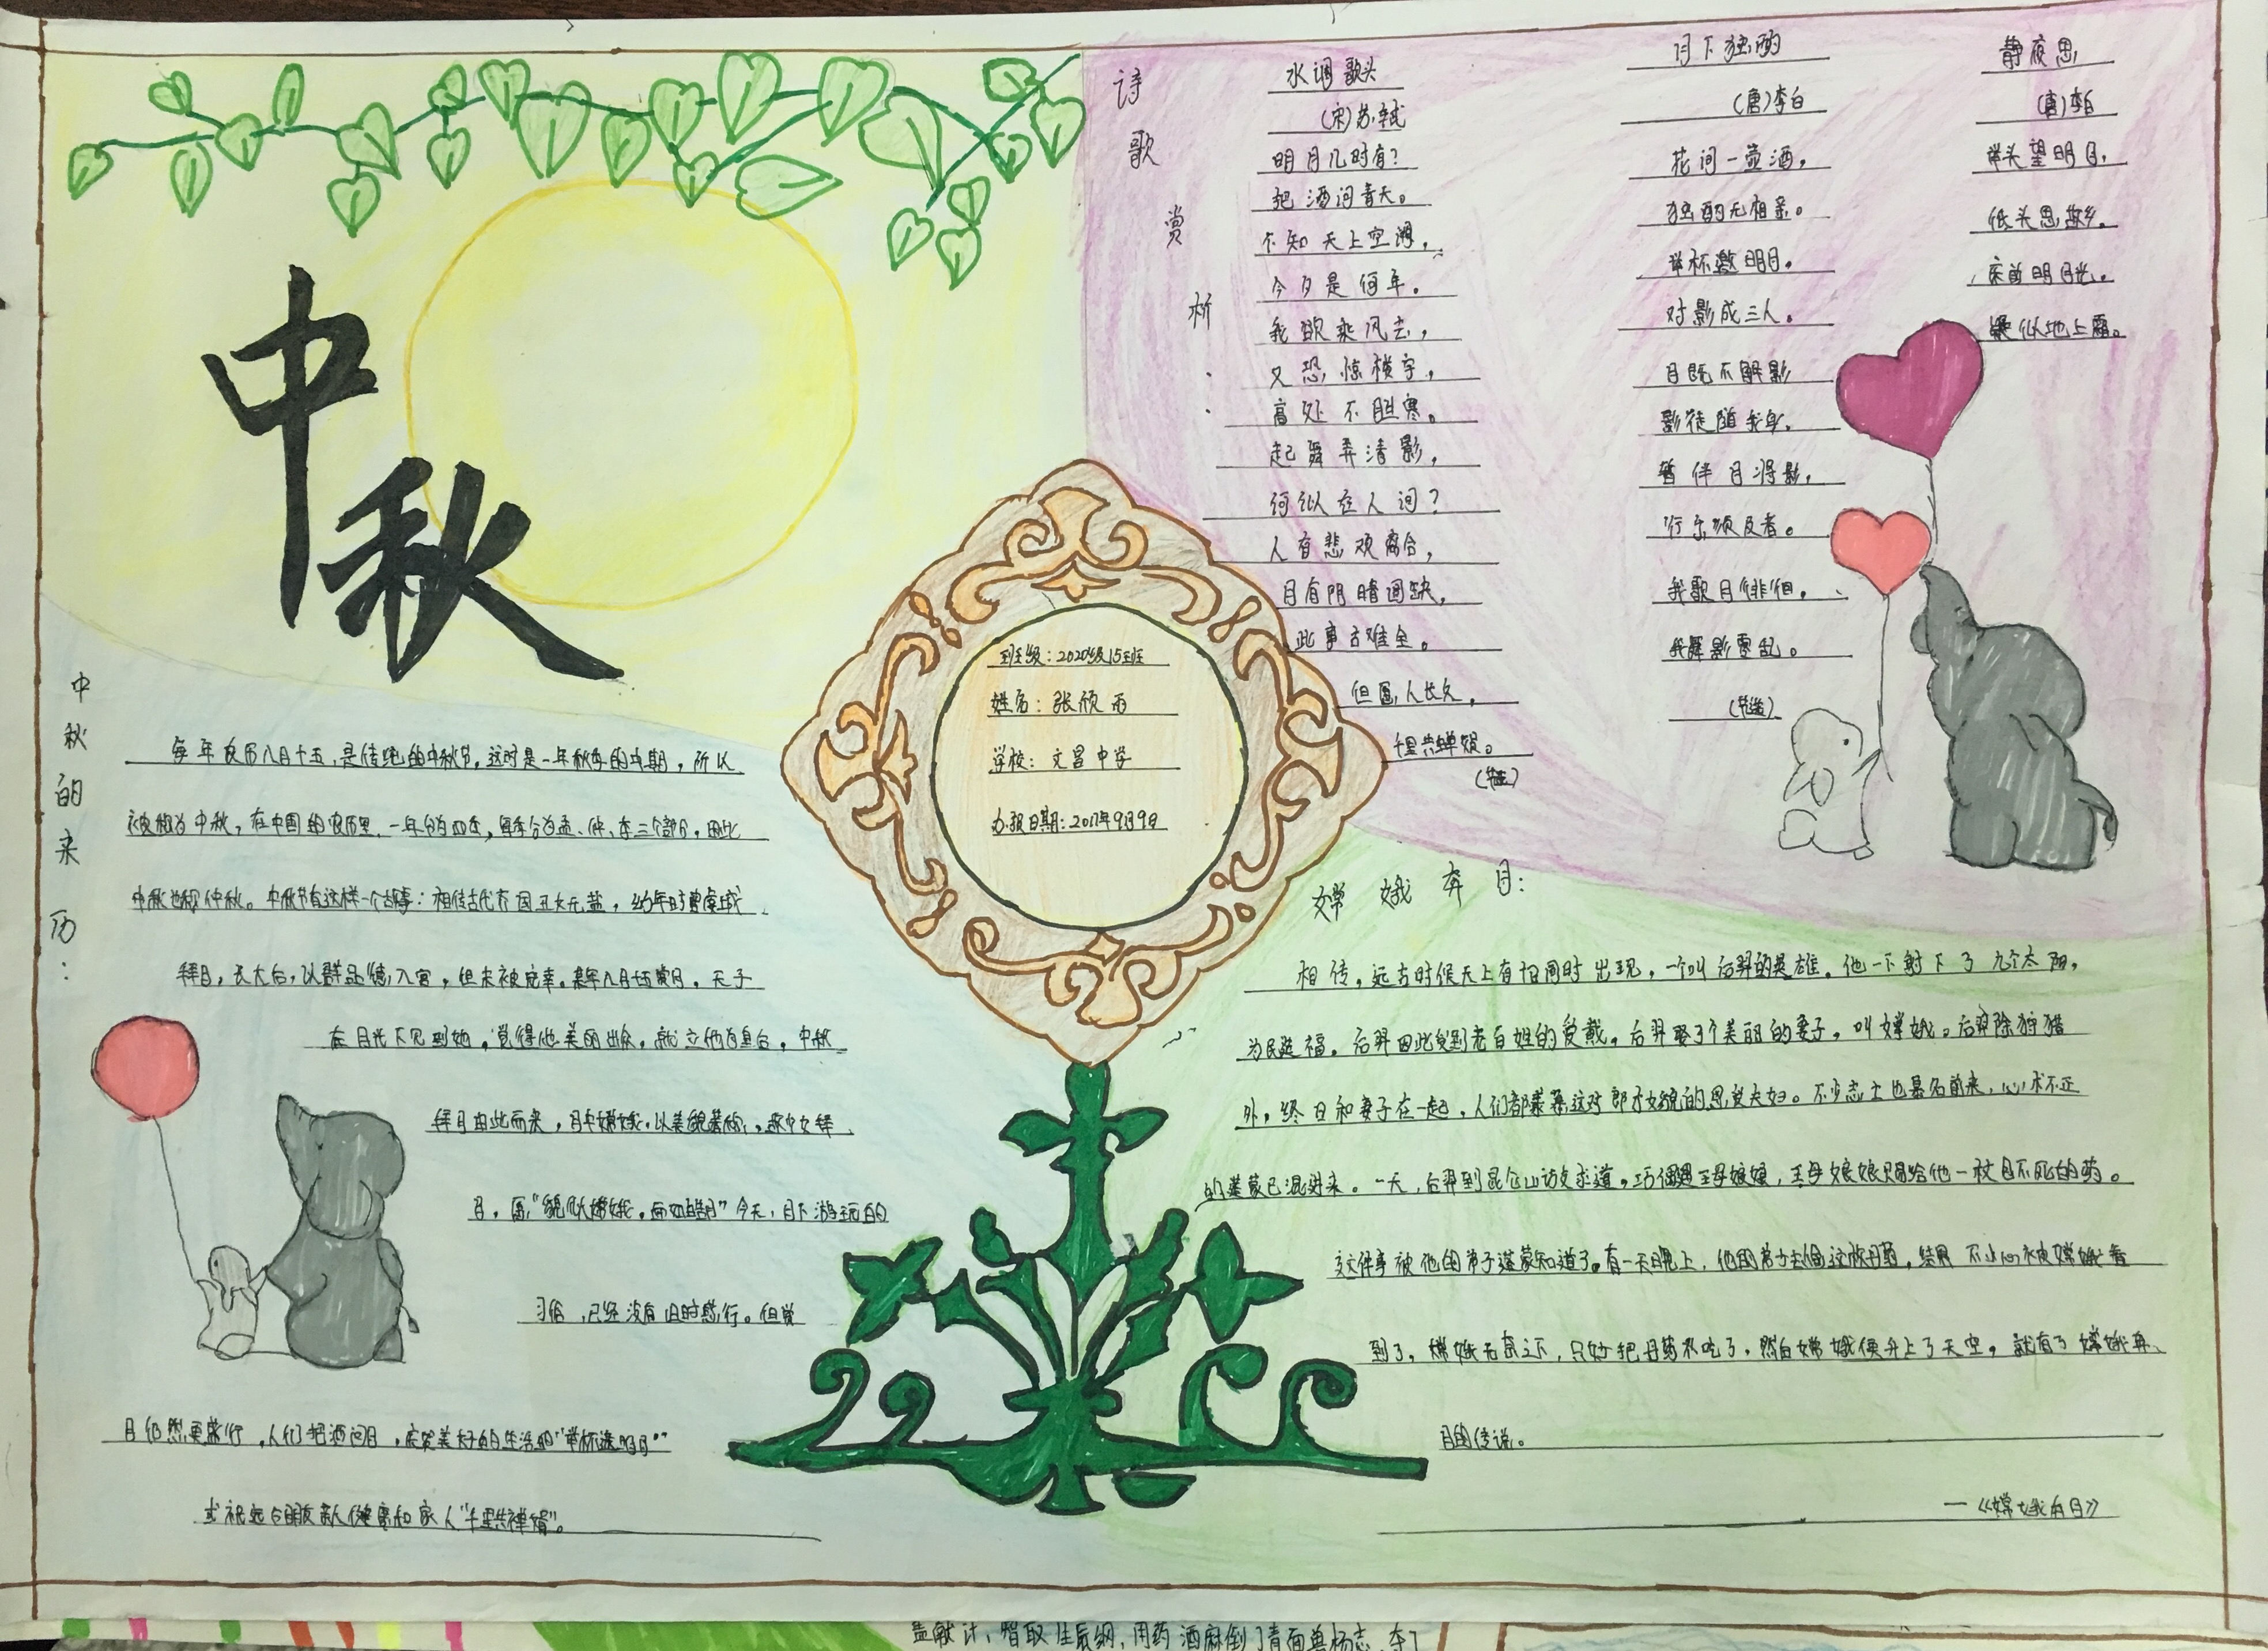 中秋
中秋的来历：
每年农历八月十五，是传统的中秋节。这时是一年秋季的中期，所以
被称为中秋，在中国的农历里，一年分为四季，每季分为孟、仲、季三个部分，因此
中秋也称仲秋。中秋节有这样一个故事：相传古代齐国丑女无盐，幼年时曾虔诚
拜月，长大后，以群品德入宫，但未被宠幸。某年八月十五赏月，天子
在月光下见到她，觉得她美丽出众，就立她为皇后，中秋
拜月由此而来，月中嫦娥，以美貌著称，故少女拜
月，愿“貌似嫦娥，面如皓月”今天，月下游玩的
习俗，已经没有旧时盛行。但赏
月仍然更盛行，人们把酒问月，庆贺美好的生活的“举杯邀明月”
或祝远方朋友亲人健康和家人“千里共禅娟”。
班级：2020级15班
姓名：张颀雨
学校：文昌中学
办报日期：2017年9月9日
诗歌赏析：
水调歌头
（宋）苏轼
明月几时有？
把酒问青天。
不知天上空阙，
今夕是何年。
我欲乘风去，
又恐惊楼宇，
高处不胜寒。
起舞弄清影，
何似在人间？
人有悲欢离合，
月有阴晴圆缺，
此事古难全。
但愿人长久，
千里共婵娟。
（节选）
月下独酌
（唐）李白
花间一壶酒，
独酌无相亲。
举杯邀明月。
对影成三人。
月既不解影
影徒随我身，
暂伴月将影，
行乐须及者。
我歌月徘徊，
我舞影零乱。
（节选）
静夜思
（唐）李白
举头望明月，
低头思故乡。
床前明月光，
疑似地上霜。
嫦娥奔月：
相传，远古时候天上有十日同时出现，一个叫后羿的英雄，他一下射下了九个太阳，
为民造福。后羿因此受到老百姓的爱戴，后羿娶了个美丽的妻子，叫嫦娥。后羿除狩猎
外，终日和妻子在一起，人们都羡慕这对郎才女貌的恩爱夫妇。不少志士也慕名前来，心术不正
的蓬蒙已混进来。一天，后羿到昆仑山访友求道，巧偶遇王母娘娘，王母娘娘赐给他一枚日不死的药。
这件事被他的弟子蓬蒙知道了。有一天晚上，他的弟子去偷这颗丹药，结果不小心被嫦娥看
到了，嫦娥无奈之下，只好把丹药水吃了，然后嫦娥便升上了天空，就有了嫦娥奔
月的传说。
—《嫦娥奔月》
孟献计，智取生辰纲，用药酒麻倒了青面兽杨志，夺了